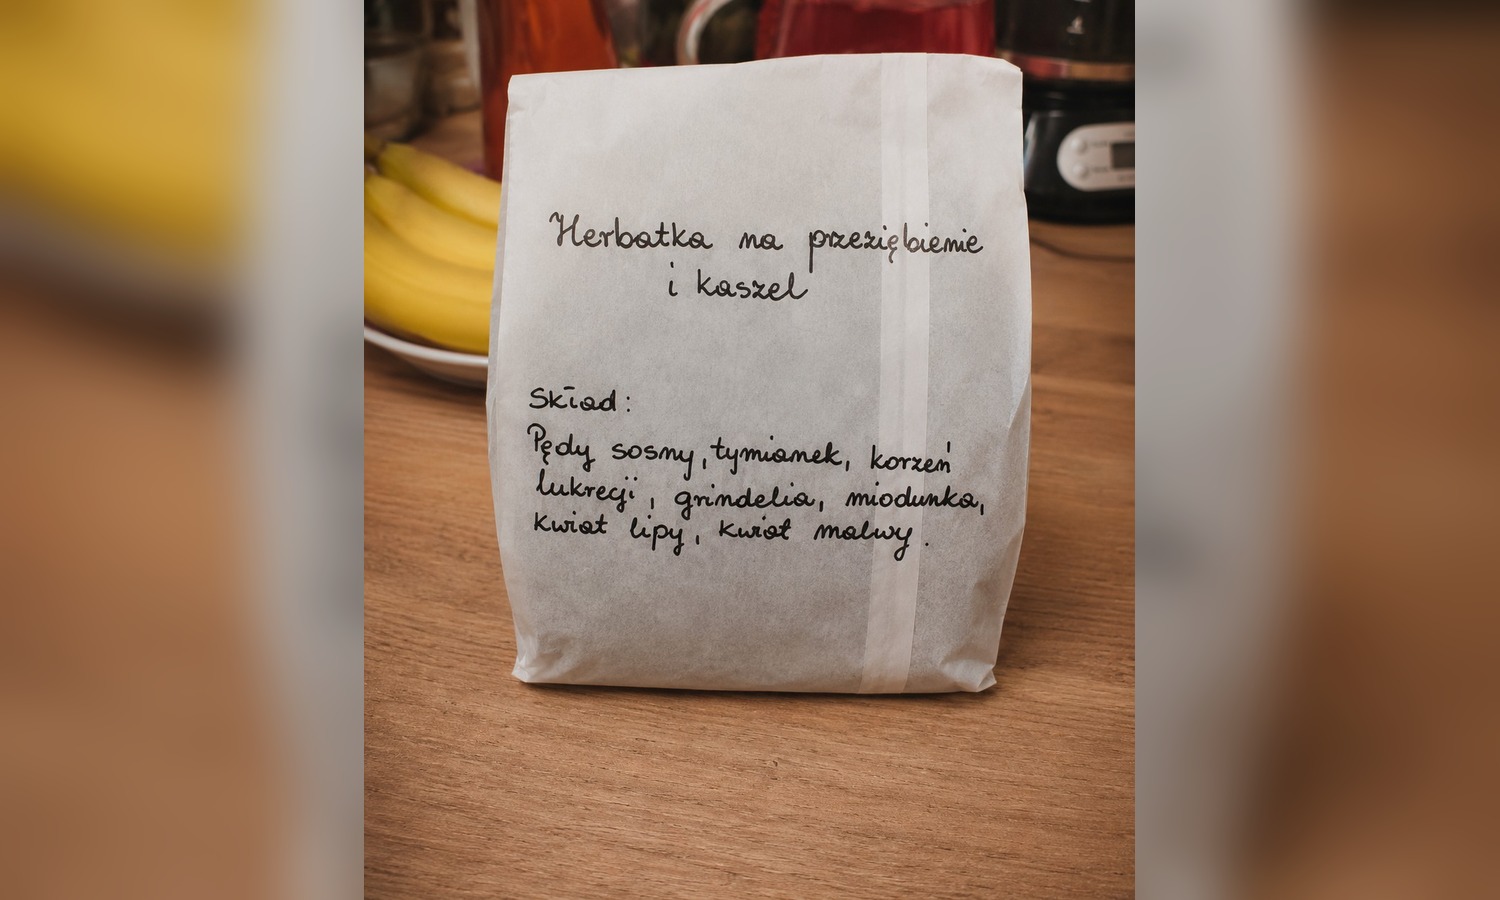 Herbatka na przeziębienie
i kaszel
Skład:
Pędy sosny, tymianek, korzeń
lukrecji, grindelia, miodunka,
kwiat lipy, kwiat malwy.